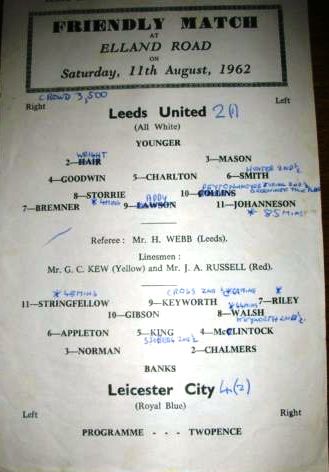 FRIENDLY MATCH
AT
ELLAND ROAD
ON
Saturday, 11th August, 1962
CROWD 3,500
Right Left
Leeds United 2(1)
(All White)
YOUNGER
WRIGHT
2—HAIR 3—MASON
HUNTER 2ND ½
4—GOODWIN 5—CHARLTON 6—SMITH
PEYTON
8—STORRIE 10—COLLINS
ADDY
7—BREMNER * 4 MINS 9—LAWSON 11—JOHANNESON
* 85 MINS
Referee : Mr. H. WEBB (Leeds).
Linesmen :
Mr. G. C. KEW (Yellow) and Mr. J. A. RUSSELL (Red).
* 48 MINS CROSS 2ND ½
11—STRINGFELLOW 9—KEYWORTH 7—RILEY
10—GIBSON 8—WALSH
KEYWORTH 2ND ½
6—APPLETON 5—KING 4—McCLINTOCK
SJOBERG 2ND ½
3—NORMAN 2—CHALMERS
BANKS
Leicester City 4(2)
(Royal Blue)
Left Right
PROGRAMME - - - TWOPENCE